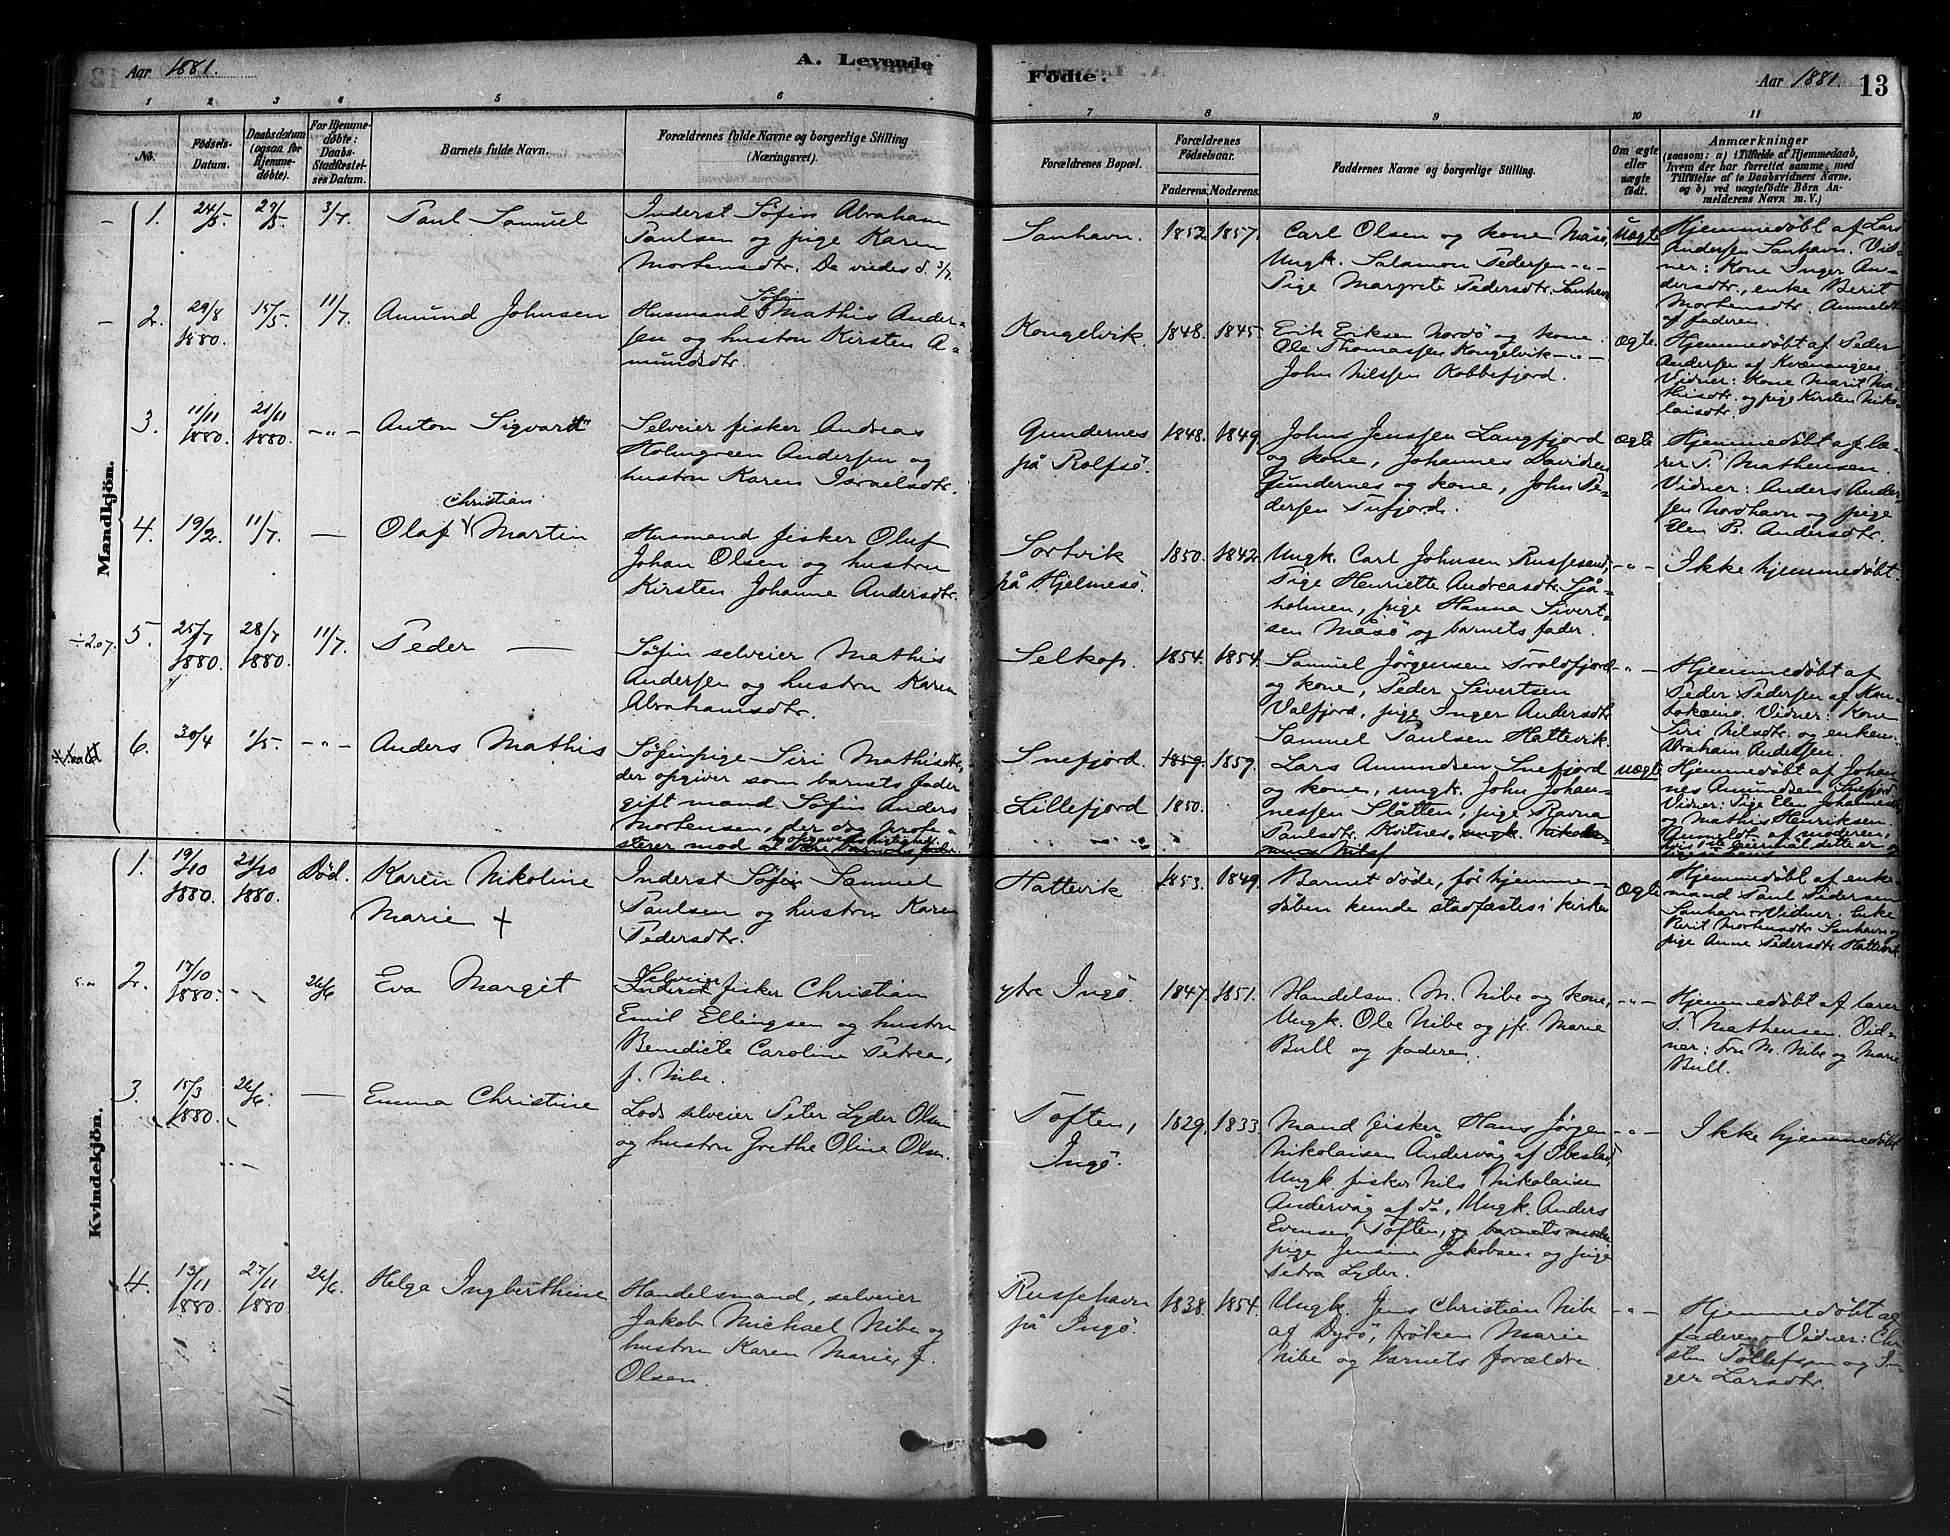 Aar 1881.
A. Levende
Fødte.
Aar 1881.
13
1 2 3 4 5 6 7 8 9 10 11
No.
Fødsels-
Datum.
Daabsdatum
(ogsaa for
Hjemme-
døbte).
For Hjemme-
døbte:
Daabs-
Stadfæstel-
ses Datum.
Barnets fulde Navn.
Forældrenes fulde Navne og borgerlige Stilling
(Næringsvei).
Forældrenes Bopæl.
Forældrenes
Fødselsaar.
Faderens. Moderens.
Faddernes Navne og borgerlige Stilling.
Om ægte
eller
uægte
født.
Anmærkninger
(saasom: a) i Tilfælde af Hjemmedaab,
hvem der har forrettet samme, med
Tilføielse af to Daabsvidners Navne,
og b) ved uægtefødte Børn An-
melderens Navn m. V.)
Mandkjön.
1. 24/5 29/5 3/7. Paul Samuel
Inderst Søfin Abraham
Paulsen og pige Karen
Mortensdtr. De viedes d. 3/7.
Sanhavn. 1852. 1857.
Carl Olsen og kone Måsö,
Ungk. Salamon Pedersen -"-
Pige Margrete Pedersdtr. Sanhavn
Uægte
Hjemmedøbt af Lars
Andersen Sanhavn. Vid-
ner: Kone Inger An-
dersdtr., enke Berit
Mortensdtr. Anmeldt
af faderen.
2. 29/8 1880. 15/5. 11/7. Amund Johnsen
Husmand Søfin Mathis Ander-
sen og hustru Kirsten A-
mundsdtr.
Kongelvik. 1848. 1845
Erik Eriksen Nordö og kone.
Ole Thomassen Kongelvik -"-
John Nilssen Kobbefjord.
Ægte.
Hjemmedøbt af Peder
Andersen af Kvænangen.
Vidner: Kone Marit Ma-
thisdtr. og pige Kirsten Niko-
laisdtr.
3. 11/11 1880. 21/11 1880. -"- Anton Sigvard
Selveier fisker Andreas
Holmgreen Andersen og
hustru Karen Israelsdtr.
Gundernes
på Rolfsö. 1848. 1849.
Johns Jenssen Langfjord
og kone, Johannes Davidsen
Gundernes og kone, John Pe-
dersen Tufjord.
Ægte
Hjemmedøbt af læ-
rer P. Mathensen.
Vidner: Anders Ander-
sen Nordhavn og pige
Elen B. Andersdtr.
4. 19/2. 11/7. — Olaf Christian Martin
Husmand fisker Oluf
Johan Olsen og hustru
Kirsten Johanne Andersdtr.
Sortvik
på Hjelmesö. 1850. 1842.
Ungk. Carl Johnsen Russesund,
Pige Henriette Andreasdtr. Sjå-
holmen, pige Hanna Sivert-
sen Måsö og barnets fader.
-"-
Ikke hjemmedøbt.
5. 25/7 1880. 28/7 1880. 11/7. Peder —
Søfin selveier Mathis
Andersen og hustru Karen
Abrahamsdtr.
Selkop. 1854. 1854.
Samuel Jørgensen Troldfjord
og kone, Peder Sivertsen
Valfjord, pige Inger Andersdtr.
Samuel Paulsen Hattevik.
-"-
Hjemmedøbt af
Peder Pedersen af Kau-
tokeino. Vidner: Kone
Siri Nilsdtr. og enkem.
Abraham Andersen.
6. 30/4 1/5. -"- Anders Mathis
Søfinpige Siri Mathisdtr.,
der opgiver som barnets fader
gift mand Søfin Anders
Mortensen, der dog prote-
sterer mod
Snefjord. 1859. 1859.
Lillefjord 1850.
Lars Amundsen Snefjord
og kone, ungk. John Johan-
nessen Slåtten, pige Ravna
Paulsdtr. Kvitnes, ungk.
Uægte
Hjemmedøbt af Johan-
nes Amundsen Snefjord
Vidner: Pige Elen Johannesdtr.
og Mathis Henriksen.
Anmeldt af moderen,
hvis 1ste leiermål dette er
Kvindekjön.
1. 19/10 1880. 21/10 1880. Død. Karen Nikoline
Marie +
Inderst Søfin Samuel
Paulsen og hustru Karen
Pedersdtr.
Hattevik 1853. 1849.
Barnet døde, før hjemme-
dåben kunde stadfæstes i kirken
Ægte
Hjemmedøbt af enke-
mand Paul Pedersen
Sanhavn. Vidner: Enke
Berit Mortensdtr. Sanhavn og
pige Anne Pedersdtr. Hattevik.
2. 17/10 1880. -"- 26/6 Eva Margit
Selveier
fisker Christian
Emil Ellingsen og hustru
Benedicte Caroline Petrea,
f. Nibe.
ytre Ingö. 1847. 1851.
Handelsm. M. Nibe og kone,
Ungk. Ole Nibe og jfr. Marie
Bull og faderen.
-"-
Hjemmedøbt af lærer
P. Mathensen. Vid-
ner: Fru M. Nibe og Marie
Bull.
3. 15/3 1880. 26/6. — Emma Christine
Lods selveier Peter Lyder Olsen
og hustru Grethe Oline Olsen.
Toften,
Ingö. 1829. 1833.
Mand fisker Hans Jørgen
Nikolaisen Åndervåg af Ibestad,
Ungk. fisker Nils Nikolaisen
Åndervåg af do, Ungk. Anders
Evensen Toften, og barnets moder
pige Jensine Jakobsen og pige
Petra Lyder.
-"-
Ikke hjemmedøbt.
4. 13/11 1880. 27/11 1880 26/6. Helga Ingberthine
Handelsmand, selveier
Jakob Michael Nibe og
hustru Karen Marie, f.
Olsen.
Russehavn
på Ingö. 1838. 1854.
Ungk. Jens Christian Nibe
af Dyrö, frøken Marie
Nibe og barnets forældre
-"-
Hjemmedøbt af
faderen. Vidner: Chri-
sten Tollefsen og In-
ger Larsdtr.